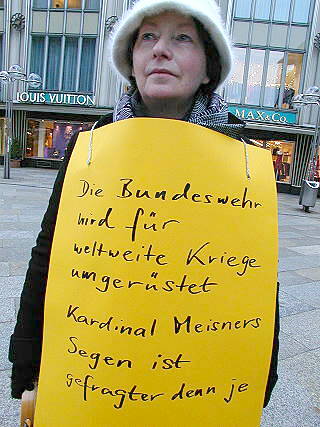 LOUIS VUITTON
MAX&Co.
Die Bundeswehr
wird für
weltweite Kriege
umgerüstet
Kardinal Meisners
Segen ist
gefragter denn je